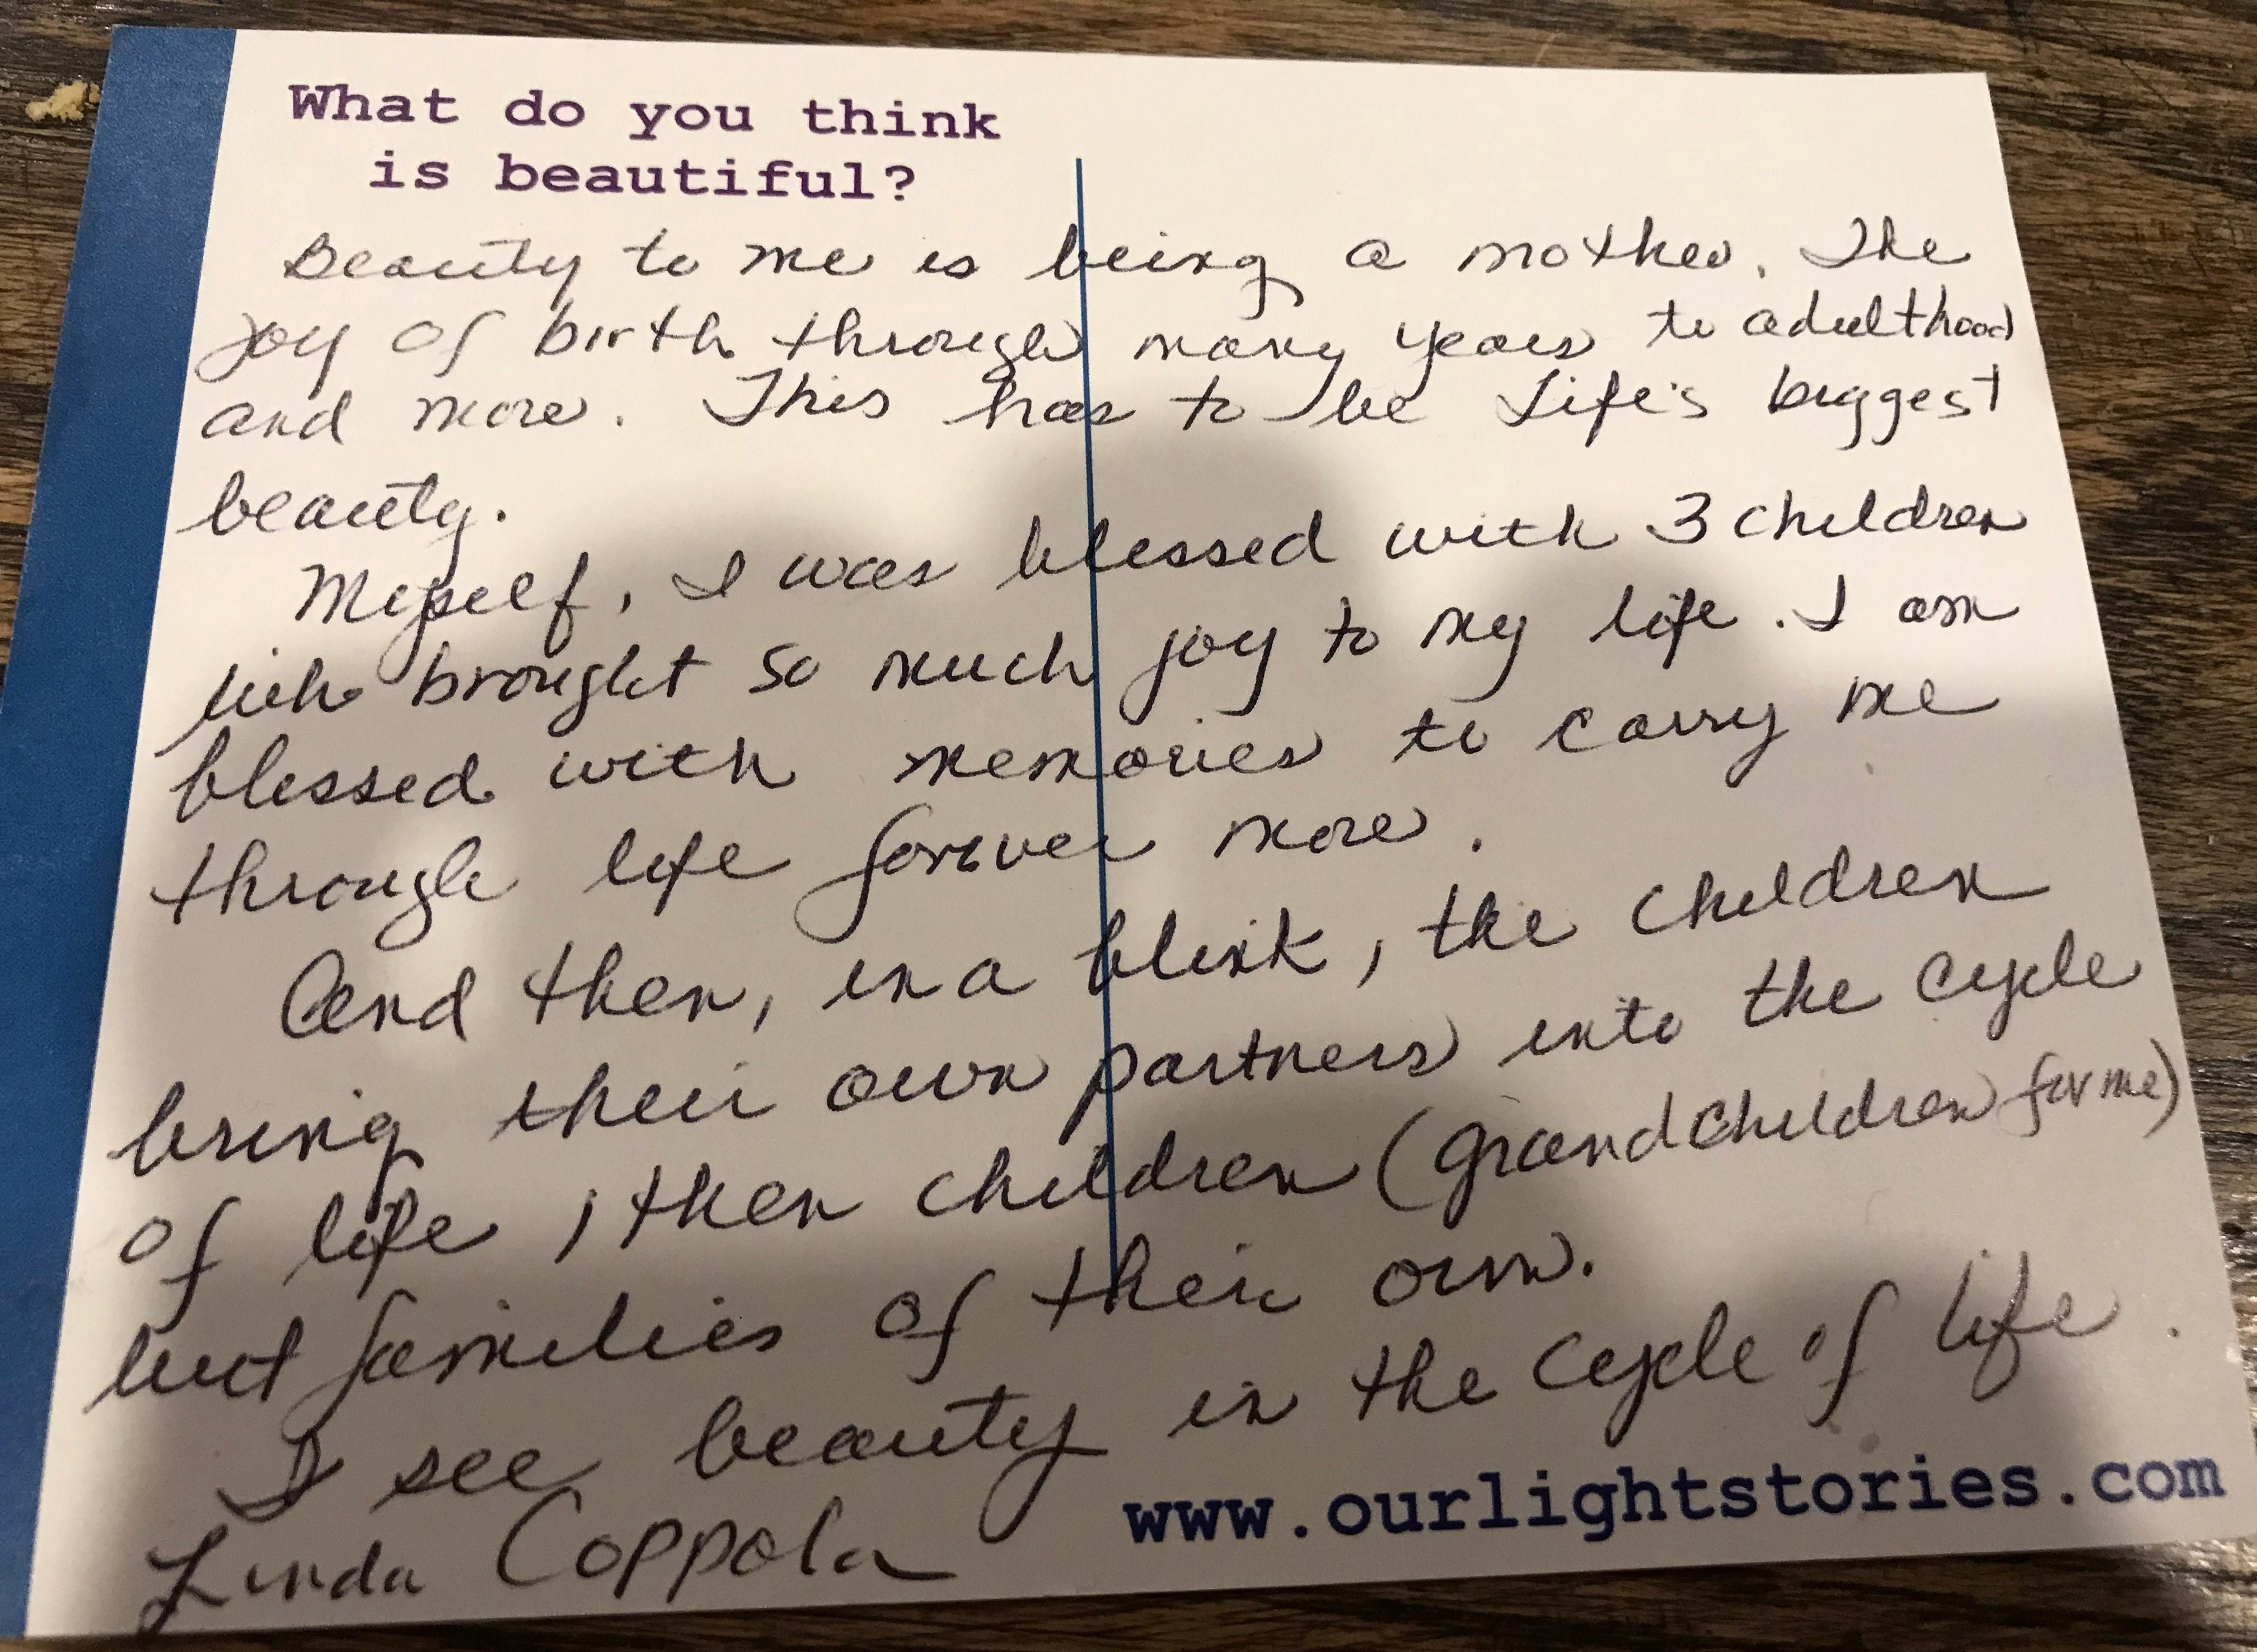 What do you think
is beautiful?
Beauty to me is being a mother. The
joy of birth through many years to adulthood
and more. This has to be Life's biggest
beauty.
Myself, I was blessed with 3 children
brought so much joy to my life. I am
blessed with memories to carry me
through life forever more.
And then, in a blink, the children
bring their own partners into the cycle
of life, then children (grandchildren for me)
but families of their own.
I see beauty in the cycle of life.
Linda Coppola
www.ourlightstories.com